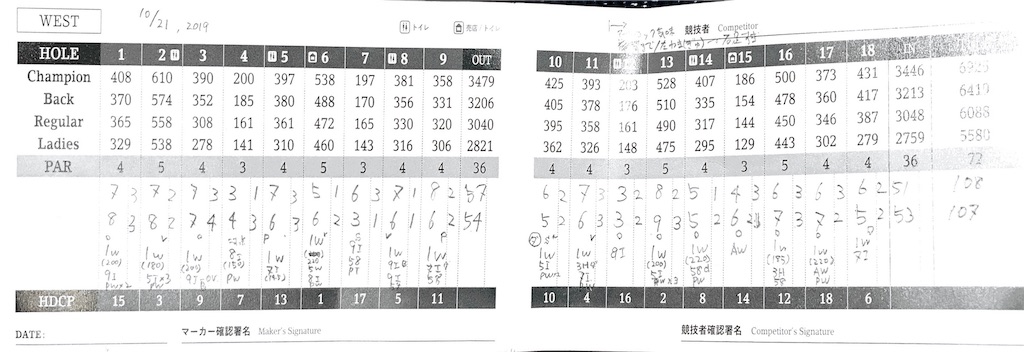 WEST 10/21, 2019 トイレ 売店/トイレ 競技者 Competitor
HOLE 1 2 3 4 5 6 7 8 9 OUT 10 11 12 13 14 15 16 17 18 IN
Champion 408 610 390 200 397 538 197 381 358 3479 425 393 203 528 407 186 500 373 431 3446 6925
Back 370 574 352 185 380 488 170 356 331 3206 405 378 176 510 335 154 478 360 417 3213 6419
Regular 365 558 308 161 361 472 165 330 320 3040 395 358 161 490 317 144 450 346 387 3048 6088
Ladies 329 538 278 141 310 460 143 316 306 2821 362 326 148 475 295 129 443 302 279 2759 5580
PAR 4 5 4 3 4 5 3 4 4 36 4 4 3 5 4 3 5 4 4 36 72
7 3 7 2 7 3 3 1 7 3 5 1 6 3 7 1 8 2 57 6 2 7 3 3 2 8 2 5 1 4 3 6 3 6 3 6 2 51 108
8 3 8 2 7 4 4 3 6 3 6 2 3 1 6 1 6 2 54 5 2 6 3 3 2 9 3 5 2 6 2 7 3 7 2 5 2 53 107
1W 1W 1W 8I 1W 1W 9I 1W 1W 1W 1W 8I 1W 1W AW 1W 1W 1W
(200) (180) (200) (150) 58 5I (200) (220) (185) (220) 7I
9I 5I×3 PW 5W PW×3 58 3H AW
PW×2 58 PW
HDCP 15 3 9 7 13 1 17 5 11 10 4 16 2 8 14 12 18 6
DATE: マーカー確認署名 Maker's Signature 競技者確認署名 Competitor's Signature